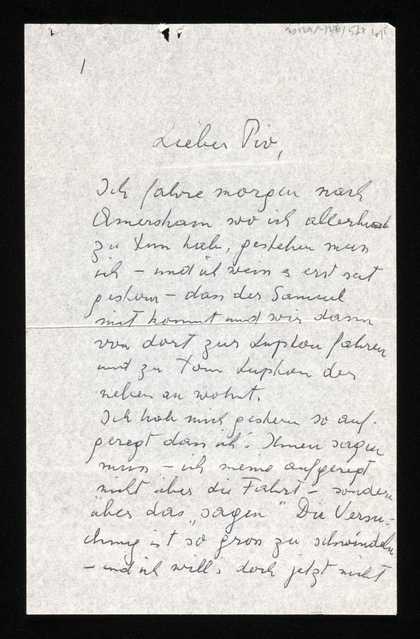 1
Lieber Pio,
Ich fahre morgen nach
Amersham wo ich allerhand
zu tun hab, gestehen muss
ich – und ich weiss es erst seit
gestern – dass der Samuel
mit kommt und wir dann
von dort zur Lupton fahren
und zu Tom Lupton der
neben an wohnt.
Ich hab mich gestern so auf-
geregt dass ich's Ihnen sagen
muss – ich meine aufgeregt
nicht über die Fahrt – sondern
über das „sagen“ Die Versu-
chung ist so gross zu schwindeln
– und ich will's doch jetzt nicht